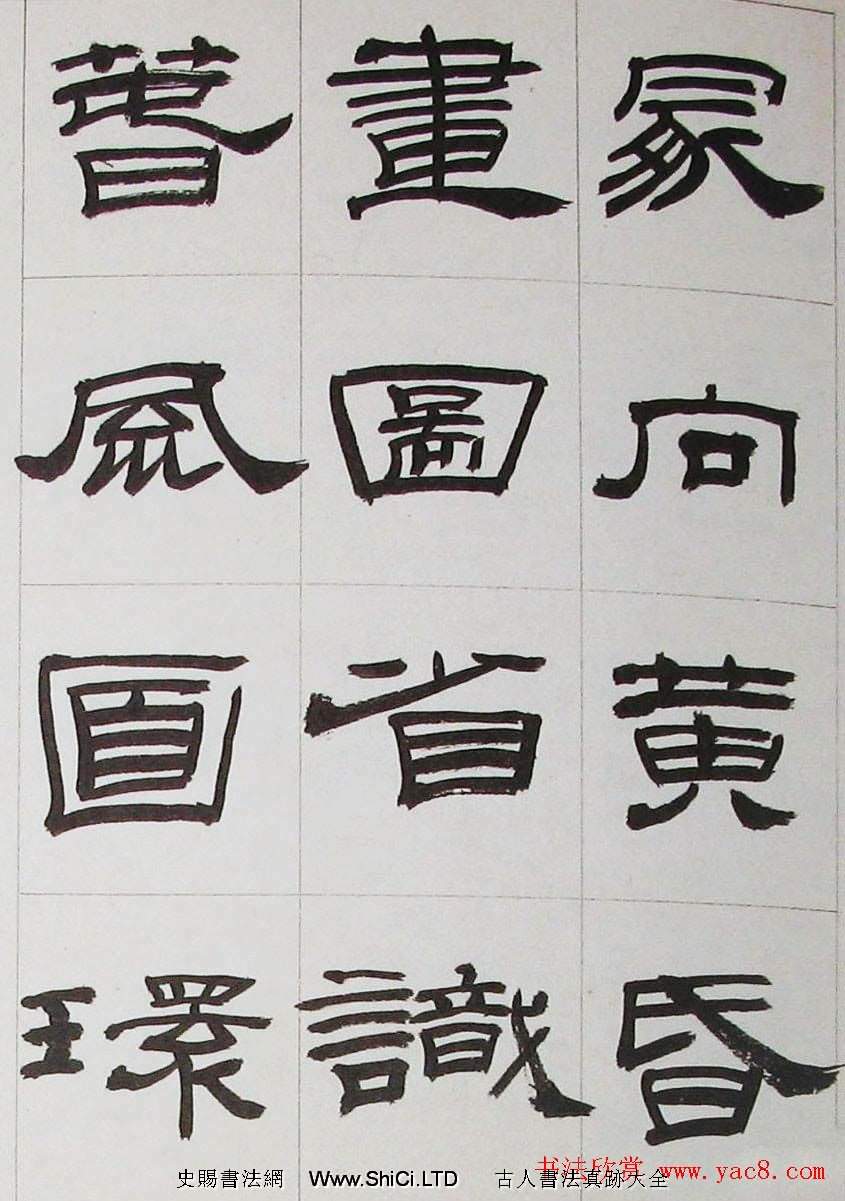 冢向黄昏
畫圖省識
春風面環
书法欣赏 www.yac8.com
史賜書法網 Www.ShiCi.LTD 古人書法真跡大全